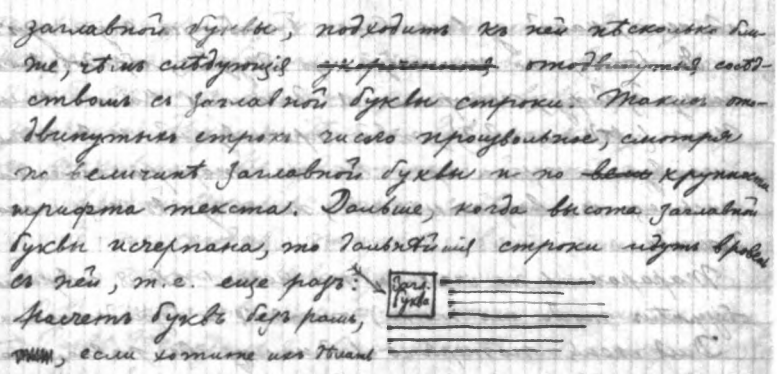 заглавной буквы, подходитъ къ ней нѣсколько бли-
же, чѣмъ слѣдующія укороченныя отодвинутыя сосѣд-
ствомъ съ заглавной буквы строки. Такихъ ото-
двинутыхъ строкъ число произвольное, смотря
по величинѣ заглавной буквы и по вели крупности
шрифта текста. Дальше, когда высота заглавной
буквы исчерпана, то дальнѣйшія строки идутъ вровень
съ ней, т.е. еще разъ:
Загл. буква
Насчетъ буквъ безъ рамъ,
, если хотите ихъ дѣлать